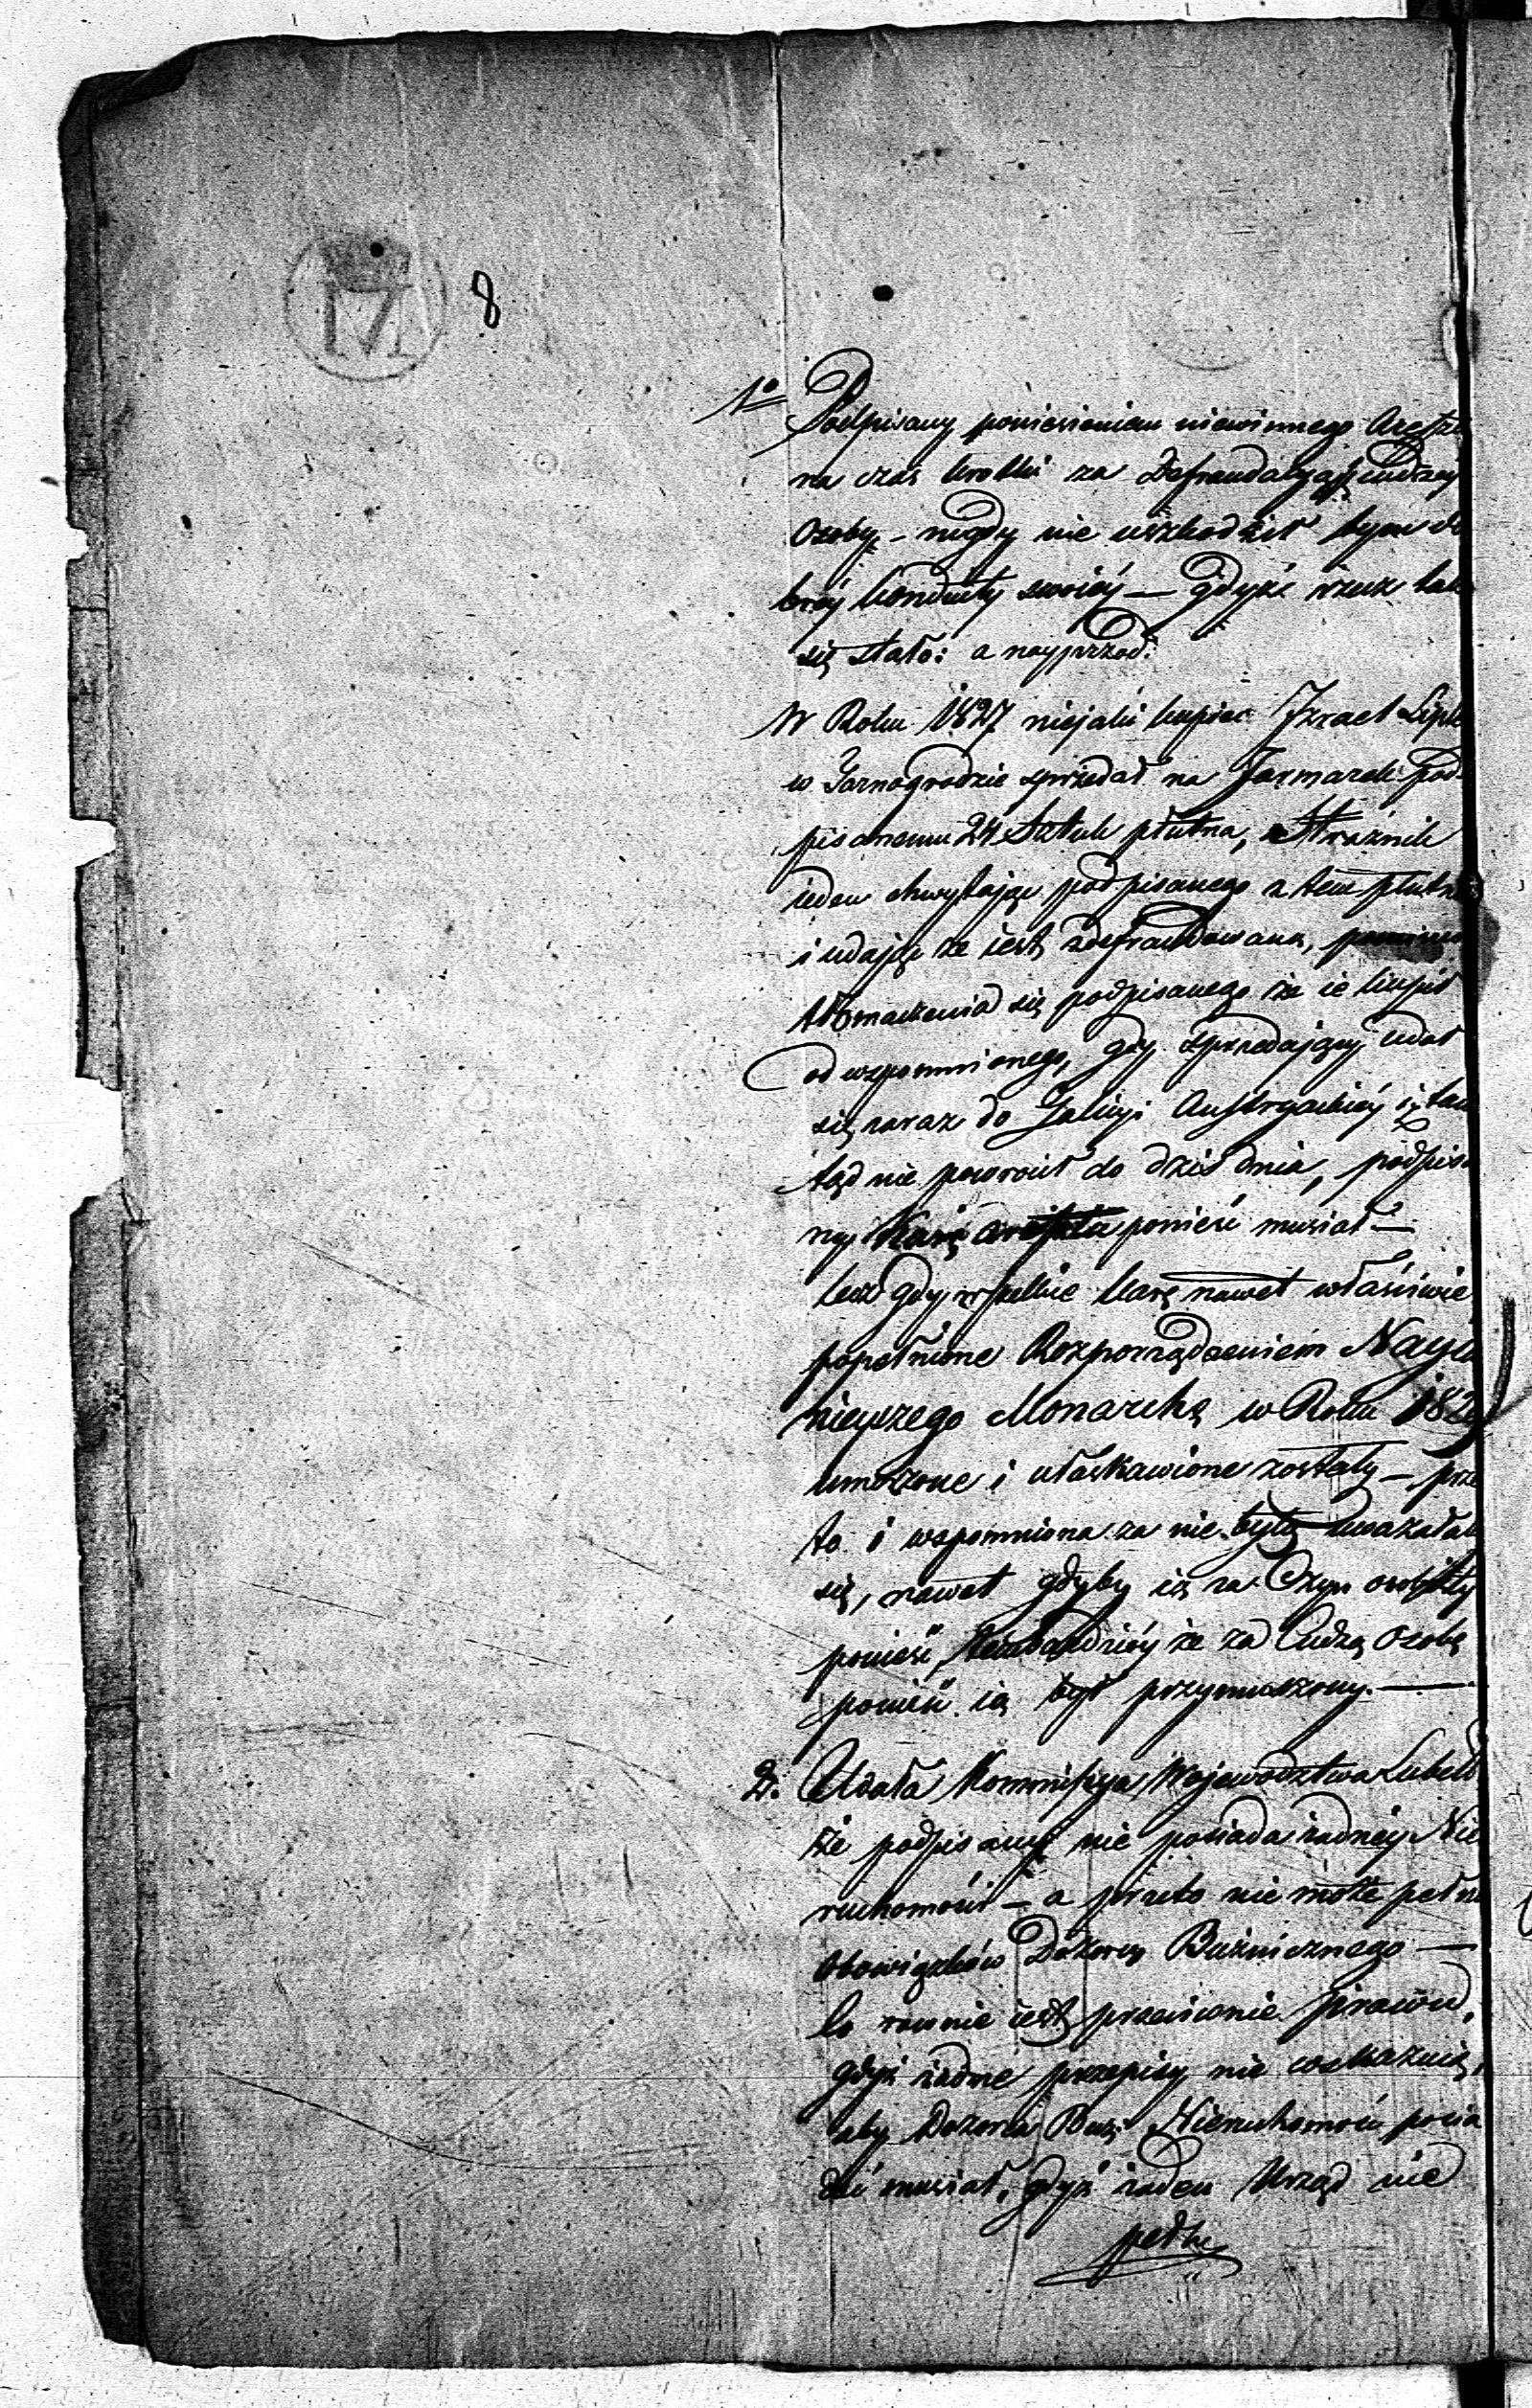 M
8
1o Podpisany poniesieniem niewinnego Areszt
na czas krotki za Defraudacyą cudzey
osoby - nigdy nie uszkodził tym do
brey konduity swoiey — gdyż rzecz tak
się stało: a nayprzod:
W Roku 1827 niejaki kupiec Izrael Lip
w Tarnogrodzie sprzedał na Jarmarek pod
pisanemu 24 Sztuk płutna, Strażnik
ieden chwytając podpisanego z tem płutn
i udając że iest zdefraudowana, pomimo
tłómaczenia się podpisanego że ie kupił
od wspomnionego, gdy sprzedający udał
się zaraz do Galicyi Austryackiéy i z tam
tąd nie powrócił do dziś dnia, podpisa
ny Karę aresztu ponieść musiał —
lecz gdy wszelkie kary nawet właściwie
popełnione Rozporządzeniem Nayia
nieyszego Monarchy w Roku 182
umorzone i ułaskawione zostały — prze
to i wspomniona za nie byłą uważała
się, nawet gdyby ią za Czyn osobisty
poniósł, tembardziéy że za Cudzą Osobę
ponieść ią był przymuszony. —
2. Udała Kommissya Województwa Lubels
że podpisany nie posiada żadnéy Nie
ruchomości — a przeto nie może pełni
obowiązków Dozorcy Bużnicznego —
Co rownie iest przeciwnie prawu,
gdyż żadne przepisy nie wskazuią,
aby Dozorca Buż: Nieruchomości posia
dać musiał, gdyż żaden Urząd nie